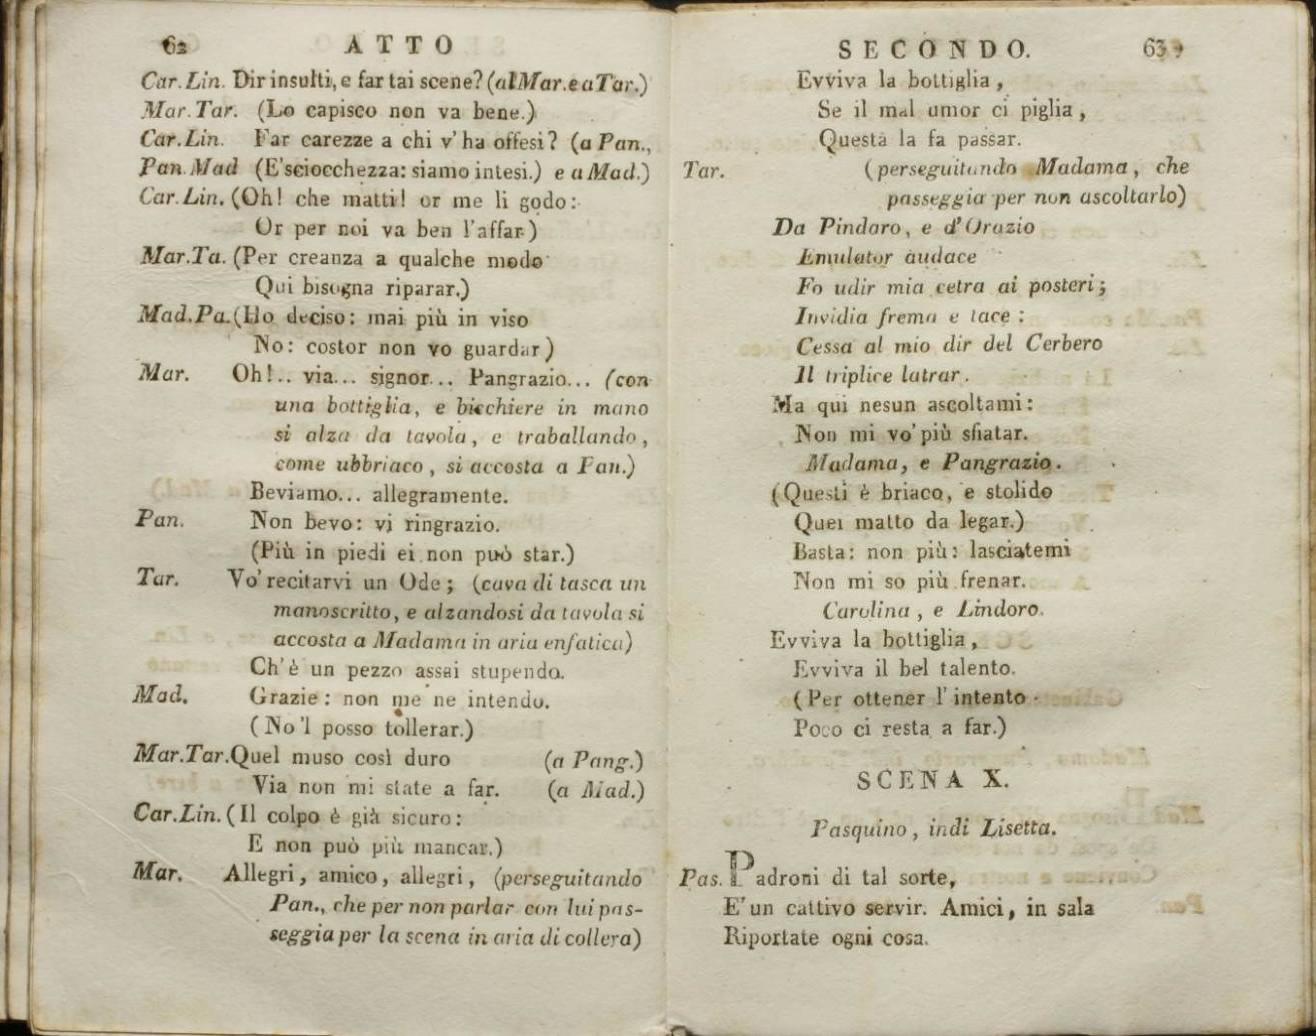 62 ATTO
Car. Lin. Dir insulti, e far tai scene? (al Mar. e a Tar.)
Mar. Tar. (Lo capisco non va bene.)
Car. Lin. Far carezze a chi v'ha offesi? (a Pan.,
Pan. Mad (E'sciocchezza: siamo intesi.) e a Mad.)
Car. Lin. (Oh! che matti! or me li godo:
Or per noi va ben l'affar)
Mar. Ta. (Per creanza a qualche modo
Qui bisogna riparar.)
Mad. Pa. (Ho deciso: mai più in viso
No: costor non vo guardar)
Mar. Oh!.. via... signor... Pangrazio... (con
una bottiglia, e bicchiere in mano
si alza da tavola, e traballando,
come ubbriaco, si accosta a Pan.)
Beviamo... allegramente.
Pan. Non bevo: vi ringrazio.
(Più in piedi ei non può star.)
Tar. Vo' recitarvi un Ode; (cava di tasca un
manoscritto, e alzandosi da tavola si
accosta a Madama in aria enfatica)
Ch'è un pezzo assai stupendo.
Mad. Grazie: non me ne intendo.
(No'l posso tollerar.)
Mar. Tar. Quel muso così duro (a Pang.)
Via non mi state a far. (a Mad.)
Car. Lin. (Il colpo è già sicuro:
E non può più mancar.)
Mar. Allegri, amico, allegri, (perseguitando
Pan., che per non parlar con lui pas-
seggia per la scena in aria di collera)
SECONDO. 63
Evviva la bottiglia,
Se il mal umor ci piglia,
Questa la fa passar.
Tar. (perseguitando Madama, che
passeggia per non ascoltarlo)
Da Pindaro, e d'Orazio
Emulator audace
Fo udir mia cetra ai posteri;
Invidia frema e tace:
Cessa al mio dir del Cerbero
Il triplice latrar.
Ma qui nesun ascoltami:
Non mi vo' più sfiatar.
Madama, e Pangrazio.
(Questi è briaco, e stolido
Quei matto da legar.)
Basta: non più: lasciatemi
Non mi so più frenar.
Carolina, e Lindoro.
Evviva la bottiglia,
Evviva il bel talento.
(Per ottener l'intento
Poco ci resta a far.)
SCENA X.
Pasquino, indi Lisetta.
Pas. Padroni di tal sorte,
E' un cattivo servir. Amici, in sala
Riportate ogni cosa.